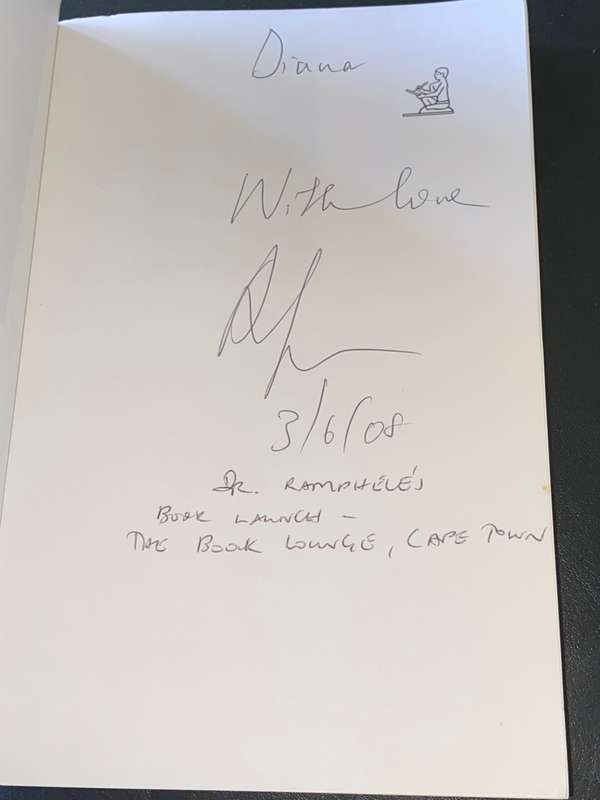 Diana
With love
3/6/08
DR. RAMPHELE'S
BOOK LAUNCH –
THE BOOK LOUNGE, CAPE TOWN